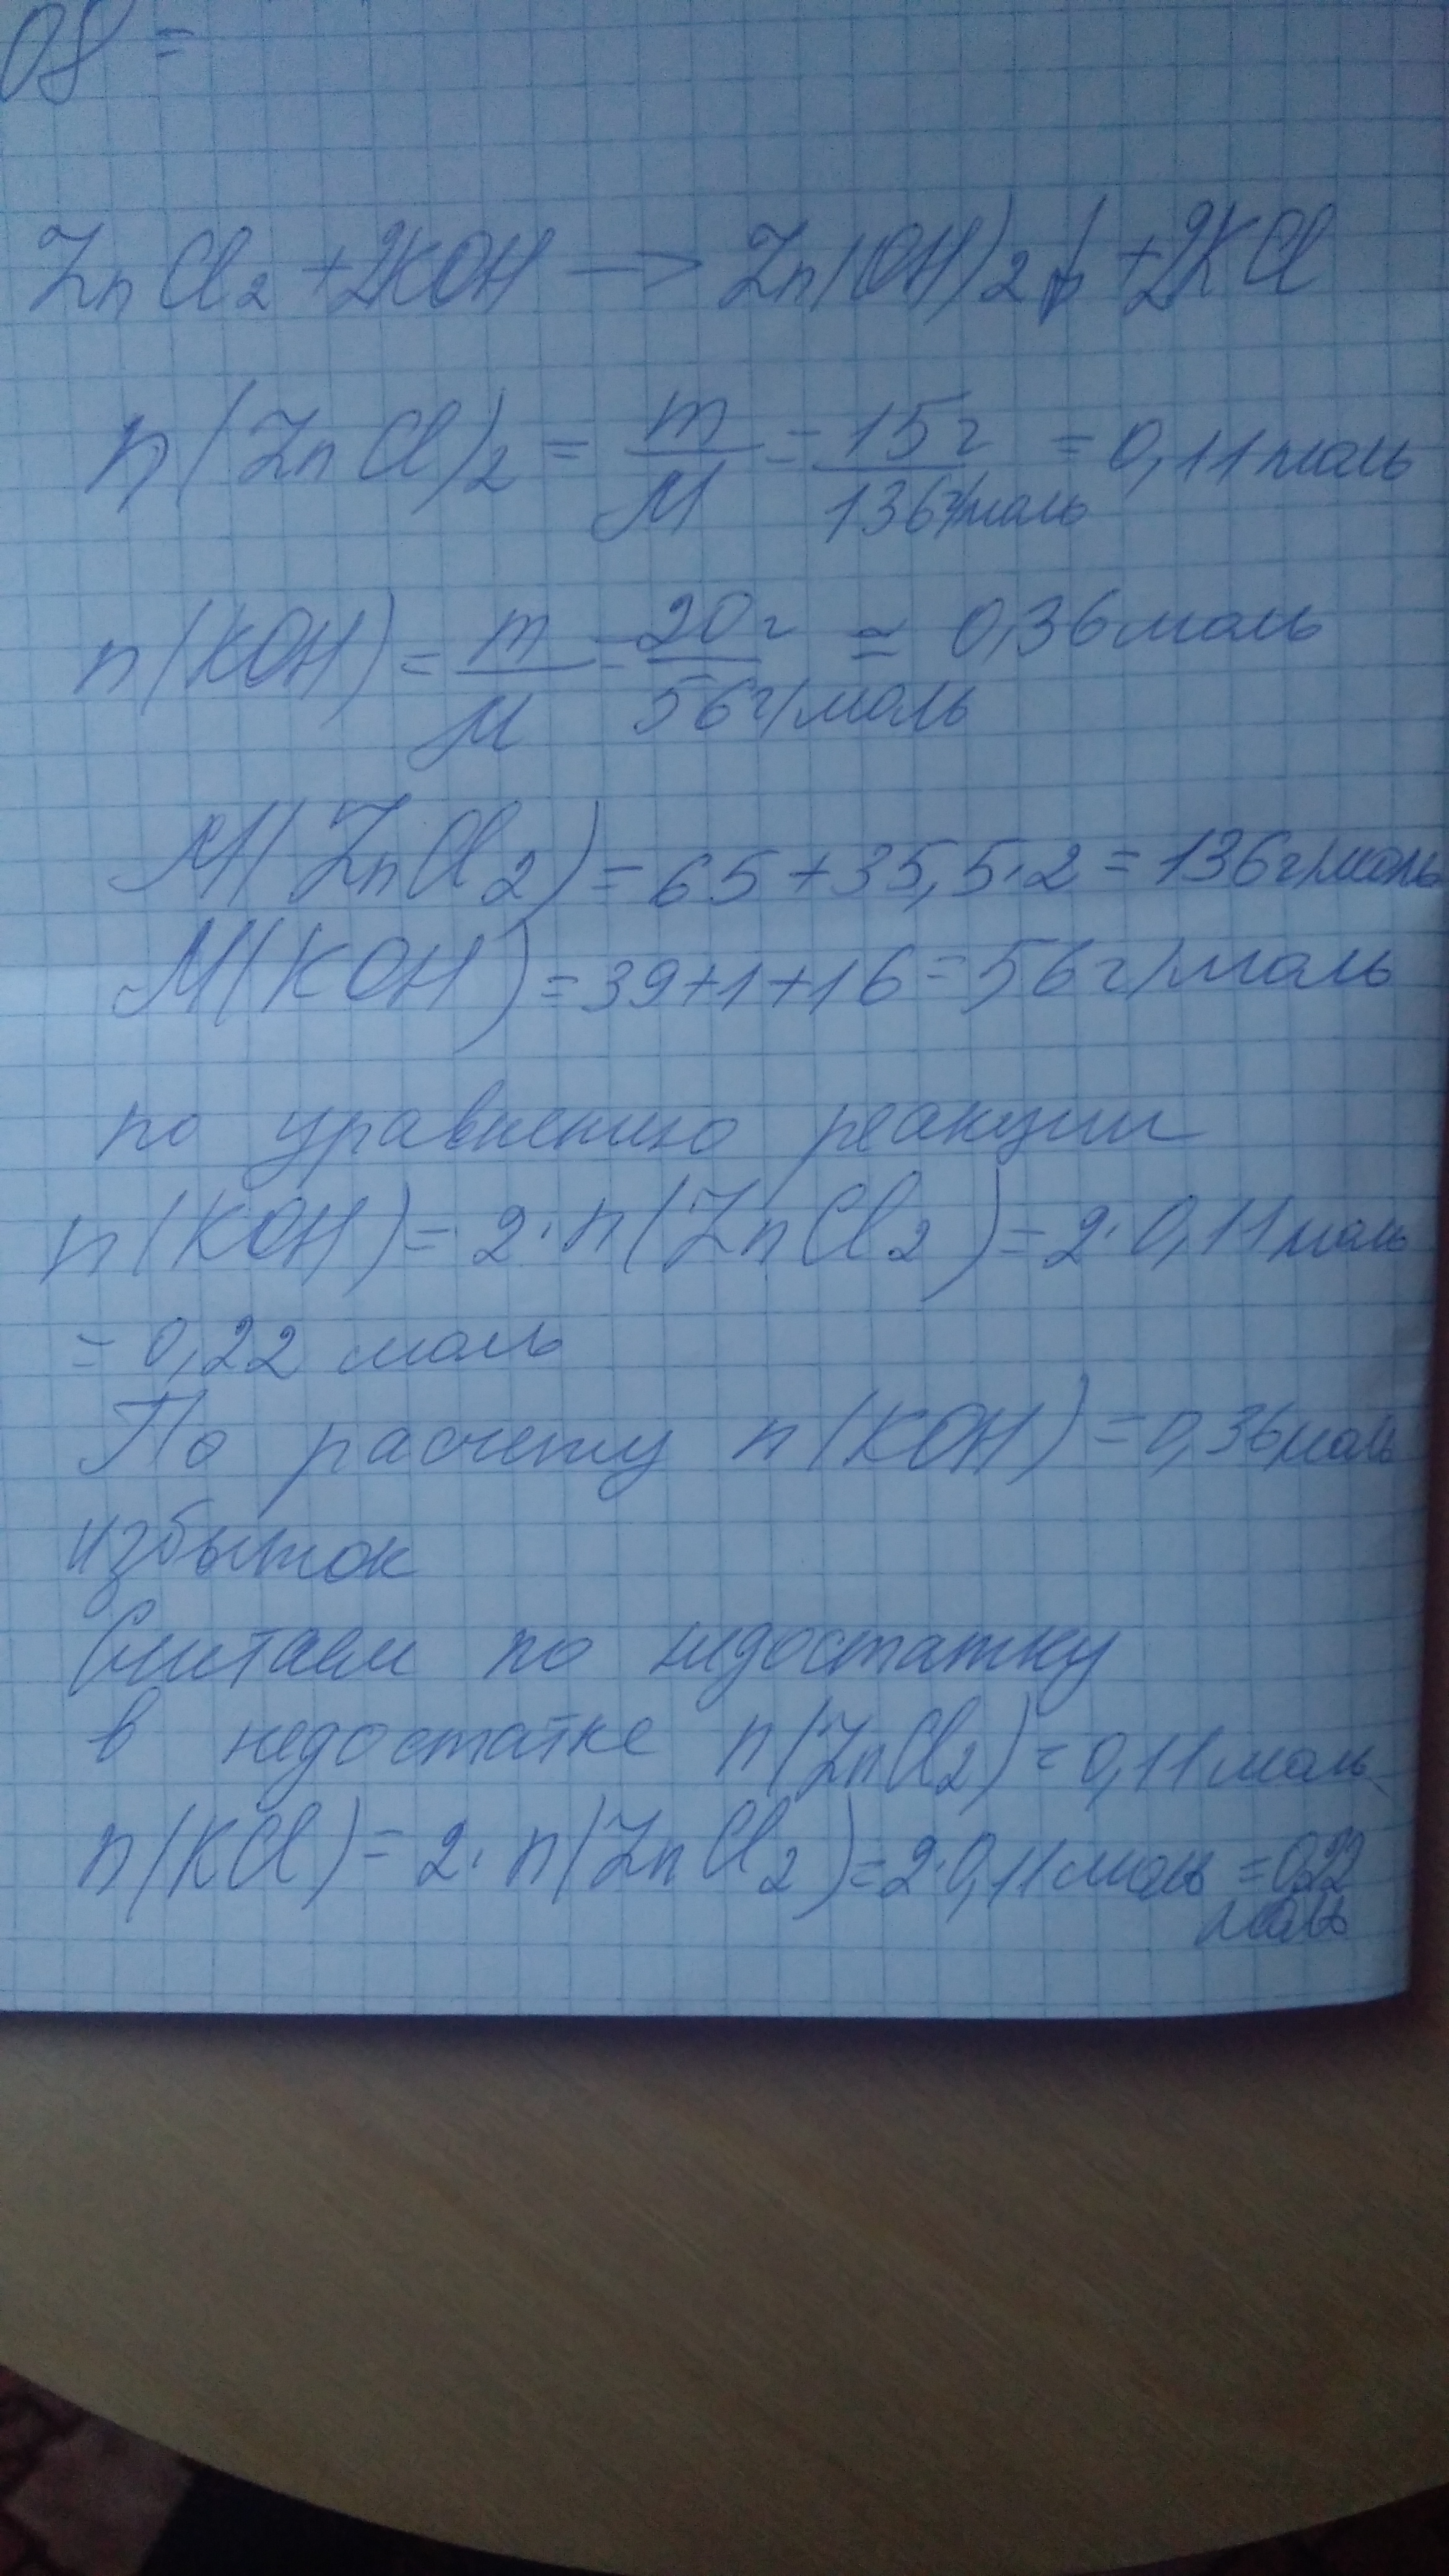 08 =
ZnCl₂ + 2KOH → Zn(OH)₂↓ + 2KCl
n(ZnCl)₂ = m/M = 15г/136г/моль = 0,11 моль
n(KOH) = m/M = 20г/56г/моль ≃ 0,36 моль
M(ZnCl₂) = 65 + 35,5·2 = 136 г/моль
M(KOH) = 39+1+16 = 56 г/моль
по уравнению реакции
n(KOH) = 2·n(ZnCl₂) = 2·0,11 моль
= 0,22 моль
По расчету n(KOH) = 0,36 моль
избыток
Считаем по недостатку
в недостатке n(ZnCl₂) = 0,11 моль
n(KCl) = 2·n(ZnCl₂) = 2·0,11 моль = 0,22
моль